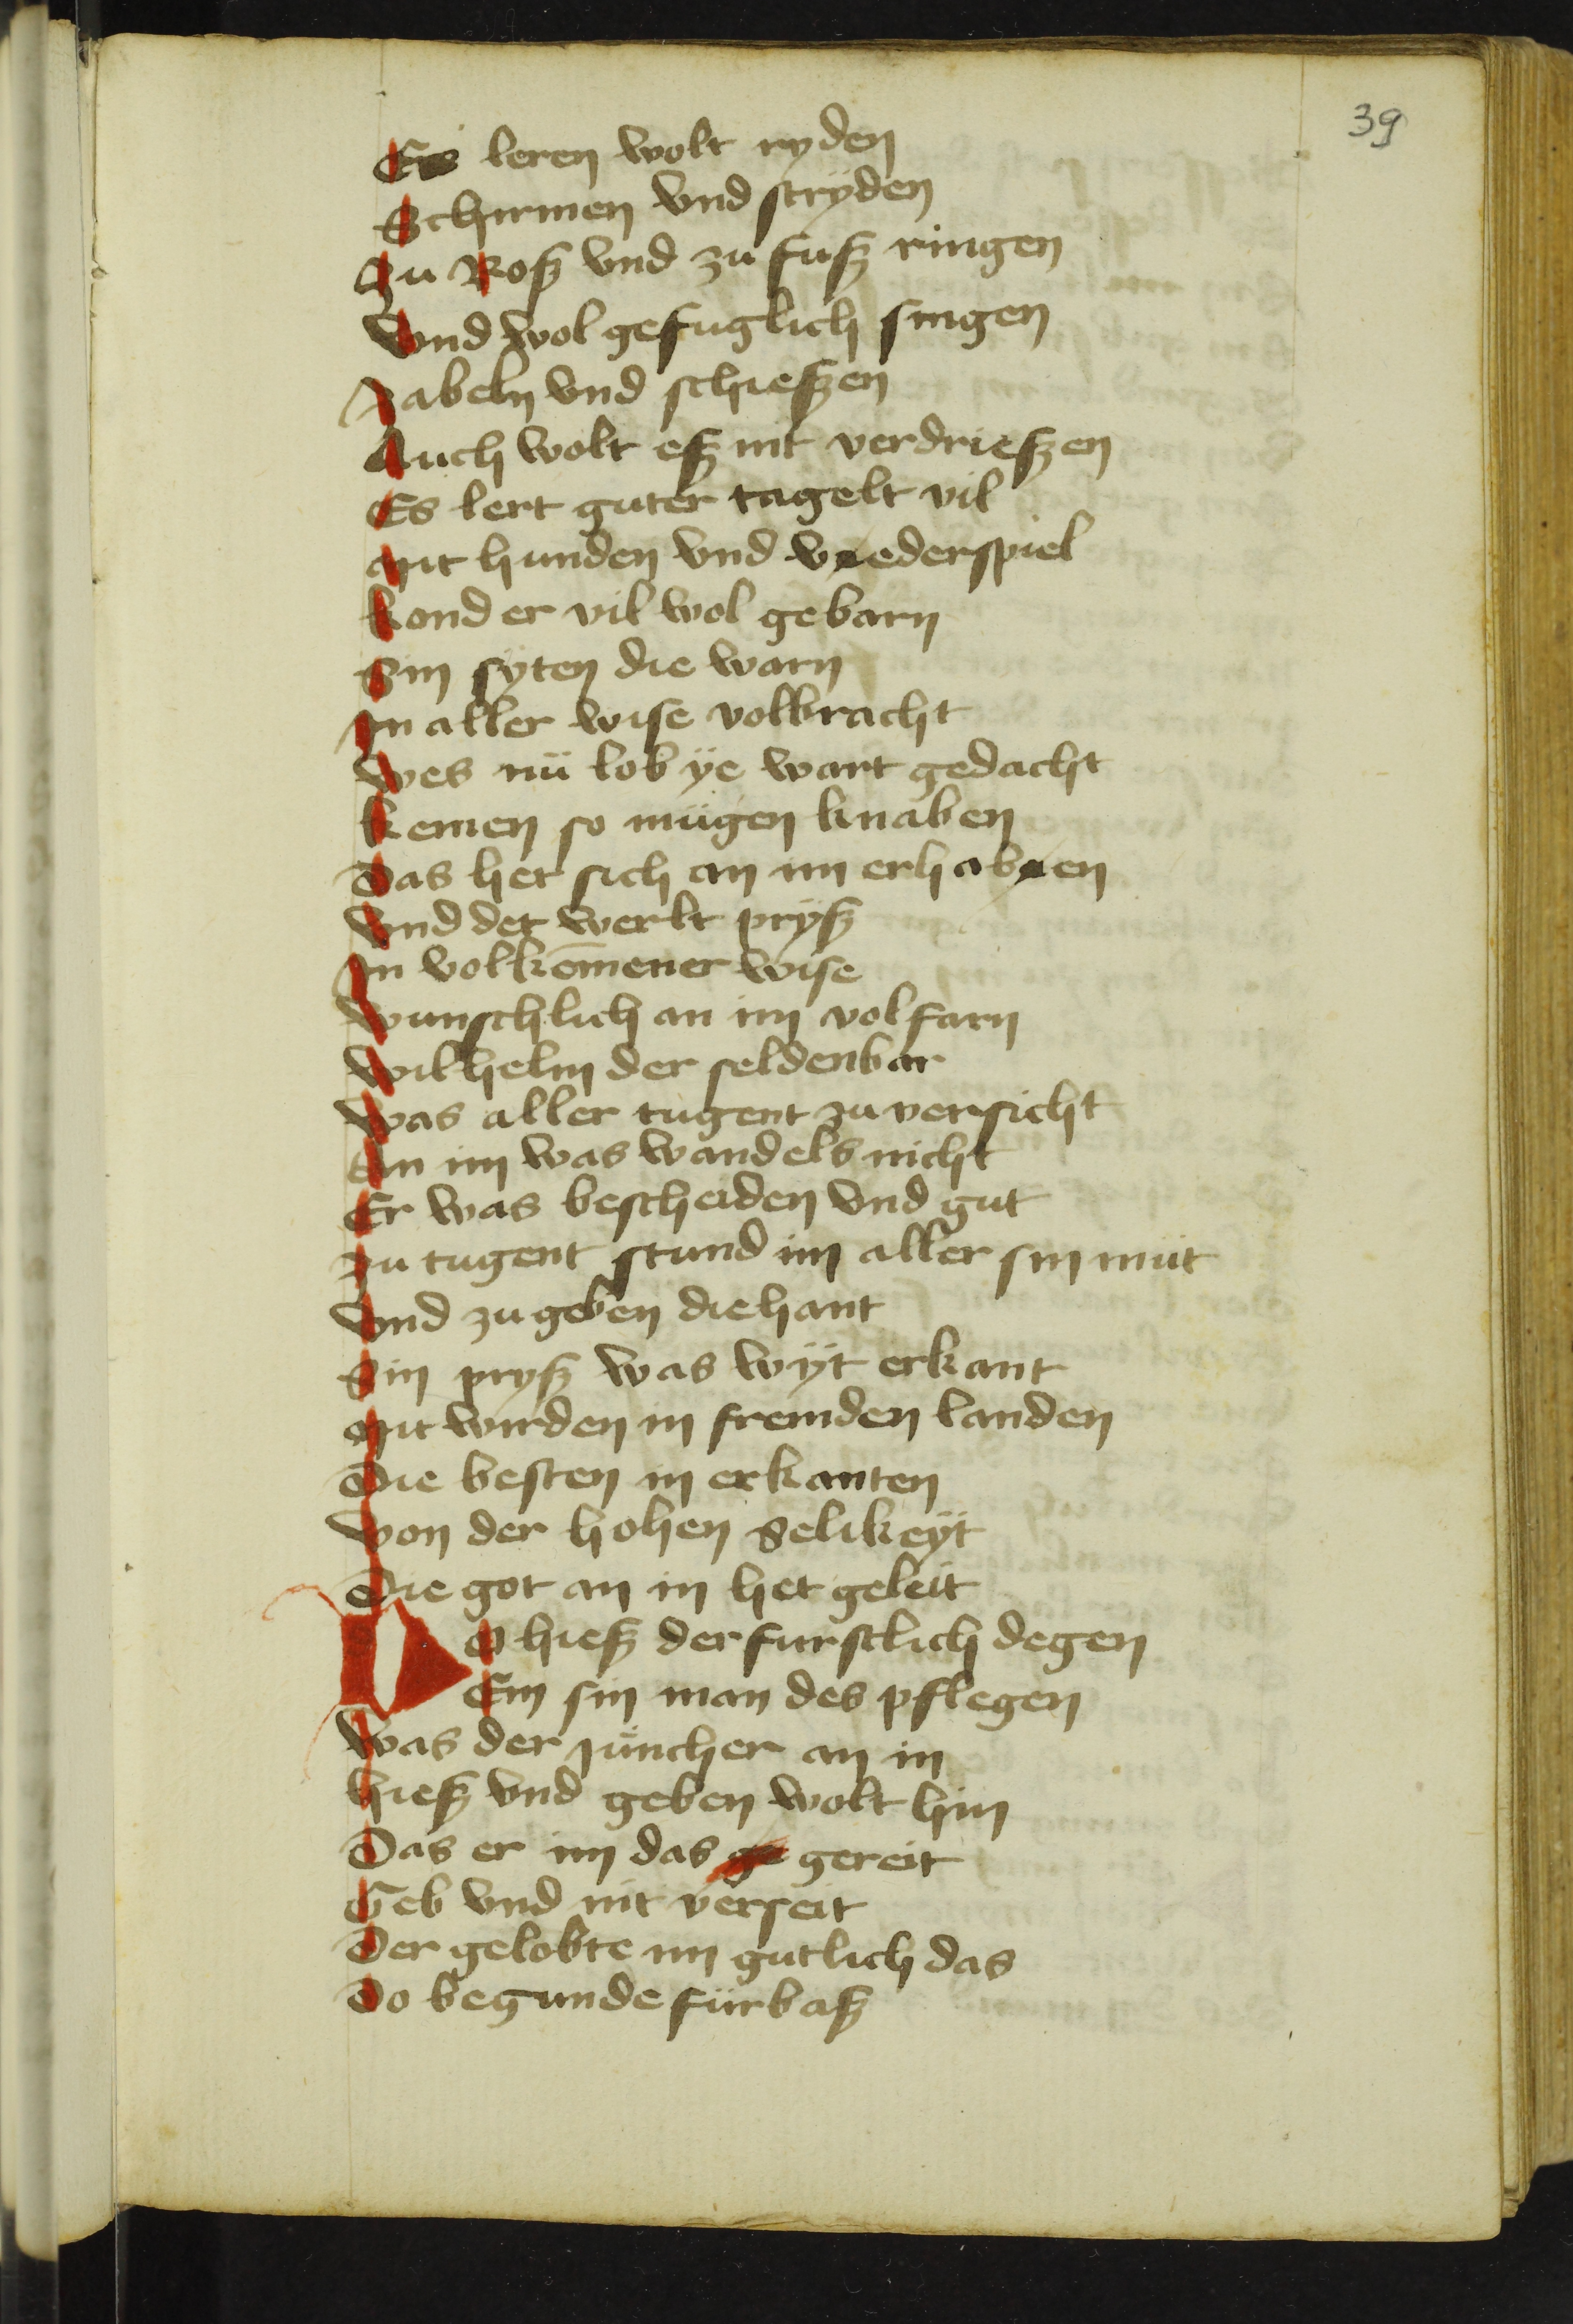 39
Es leren wolt ryden
Schirmen vnd stryden
Zu Rosz vnd zu fusz ringen
Vnd wol gefuglich singen
Zabeln vnd schieszen
Auch wolt esz nit verdrieszen
Es lert guter tagelt vil
Mit hunden vnd vederspiel
Kond er vil wol gebarn
Sin syten die warn
In aller wise volbracht
Wes nü lob ÿe wart gedacht
Keinen so mügen knaben
Das het sich an im erhaben
Vnd det werlt prÿsz
In volkōmener wise
Wunschlich an im volfarn
Wilhelm der seldenbar
Was aller tugent zuversicht
An im was wandels nicht
Er was bescheiden vnd gut
Zu tugent stund im aller sin müt
Vnd zu geben die hant
Sin prysz was wÿt erkant
Mit wirden in fremden landen
Die besten in erkanten
Von der hohen Selikeÿt
Die got an in het geleit
Do hiesz der furstlich degen
Ein sin man des pflegen
Was der Juncher an in
Hiesz vnd geben wolt hin
Das er im das gereit
Geb vnd nit verseit
Der gelobte im gutlich das
Do begunde fürbasz